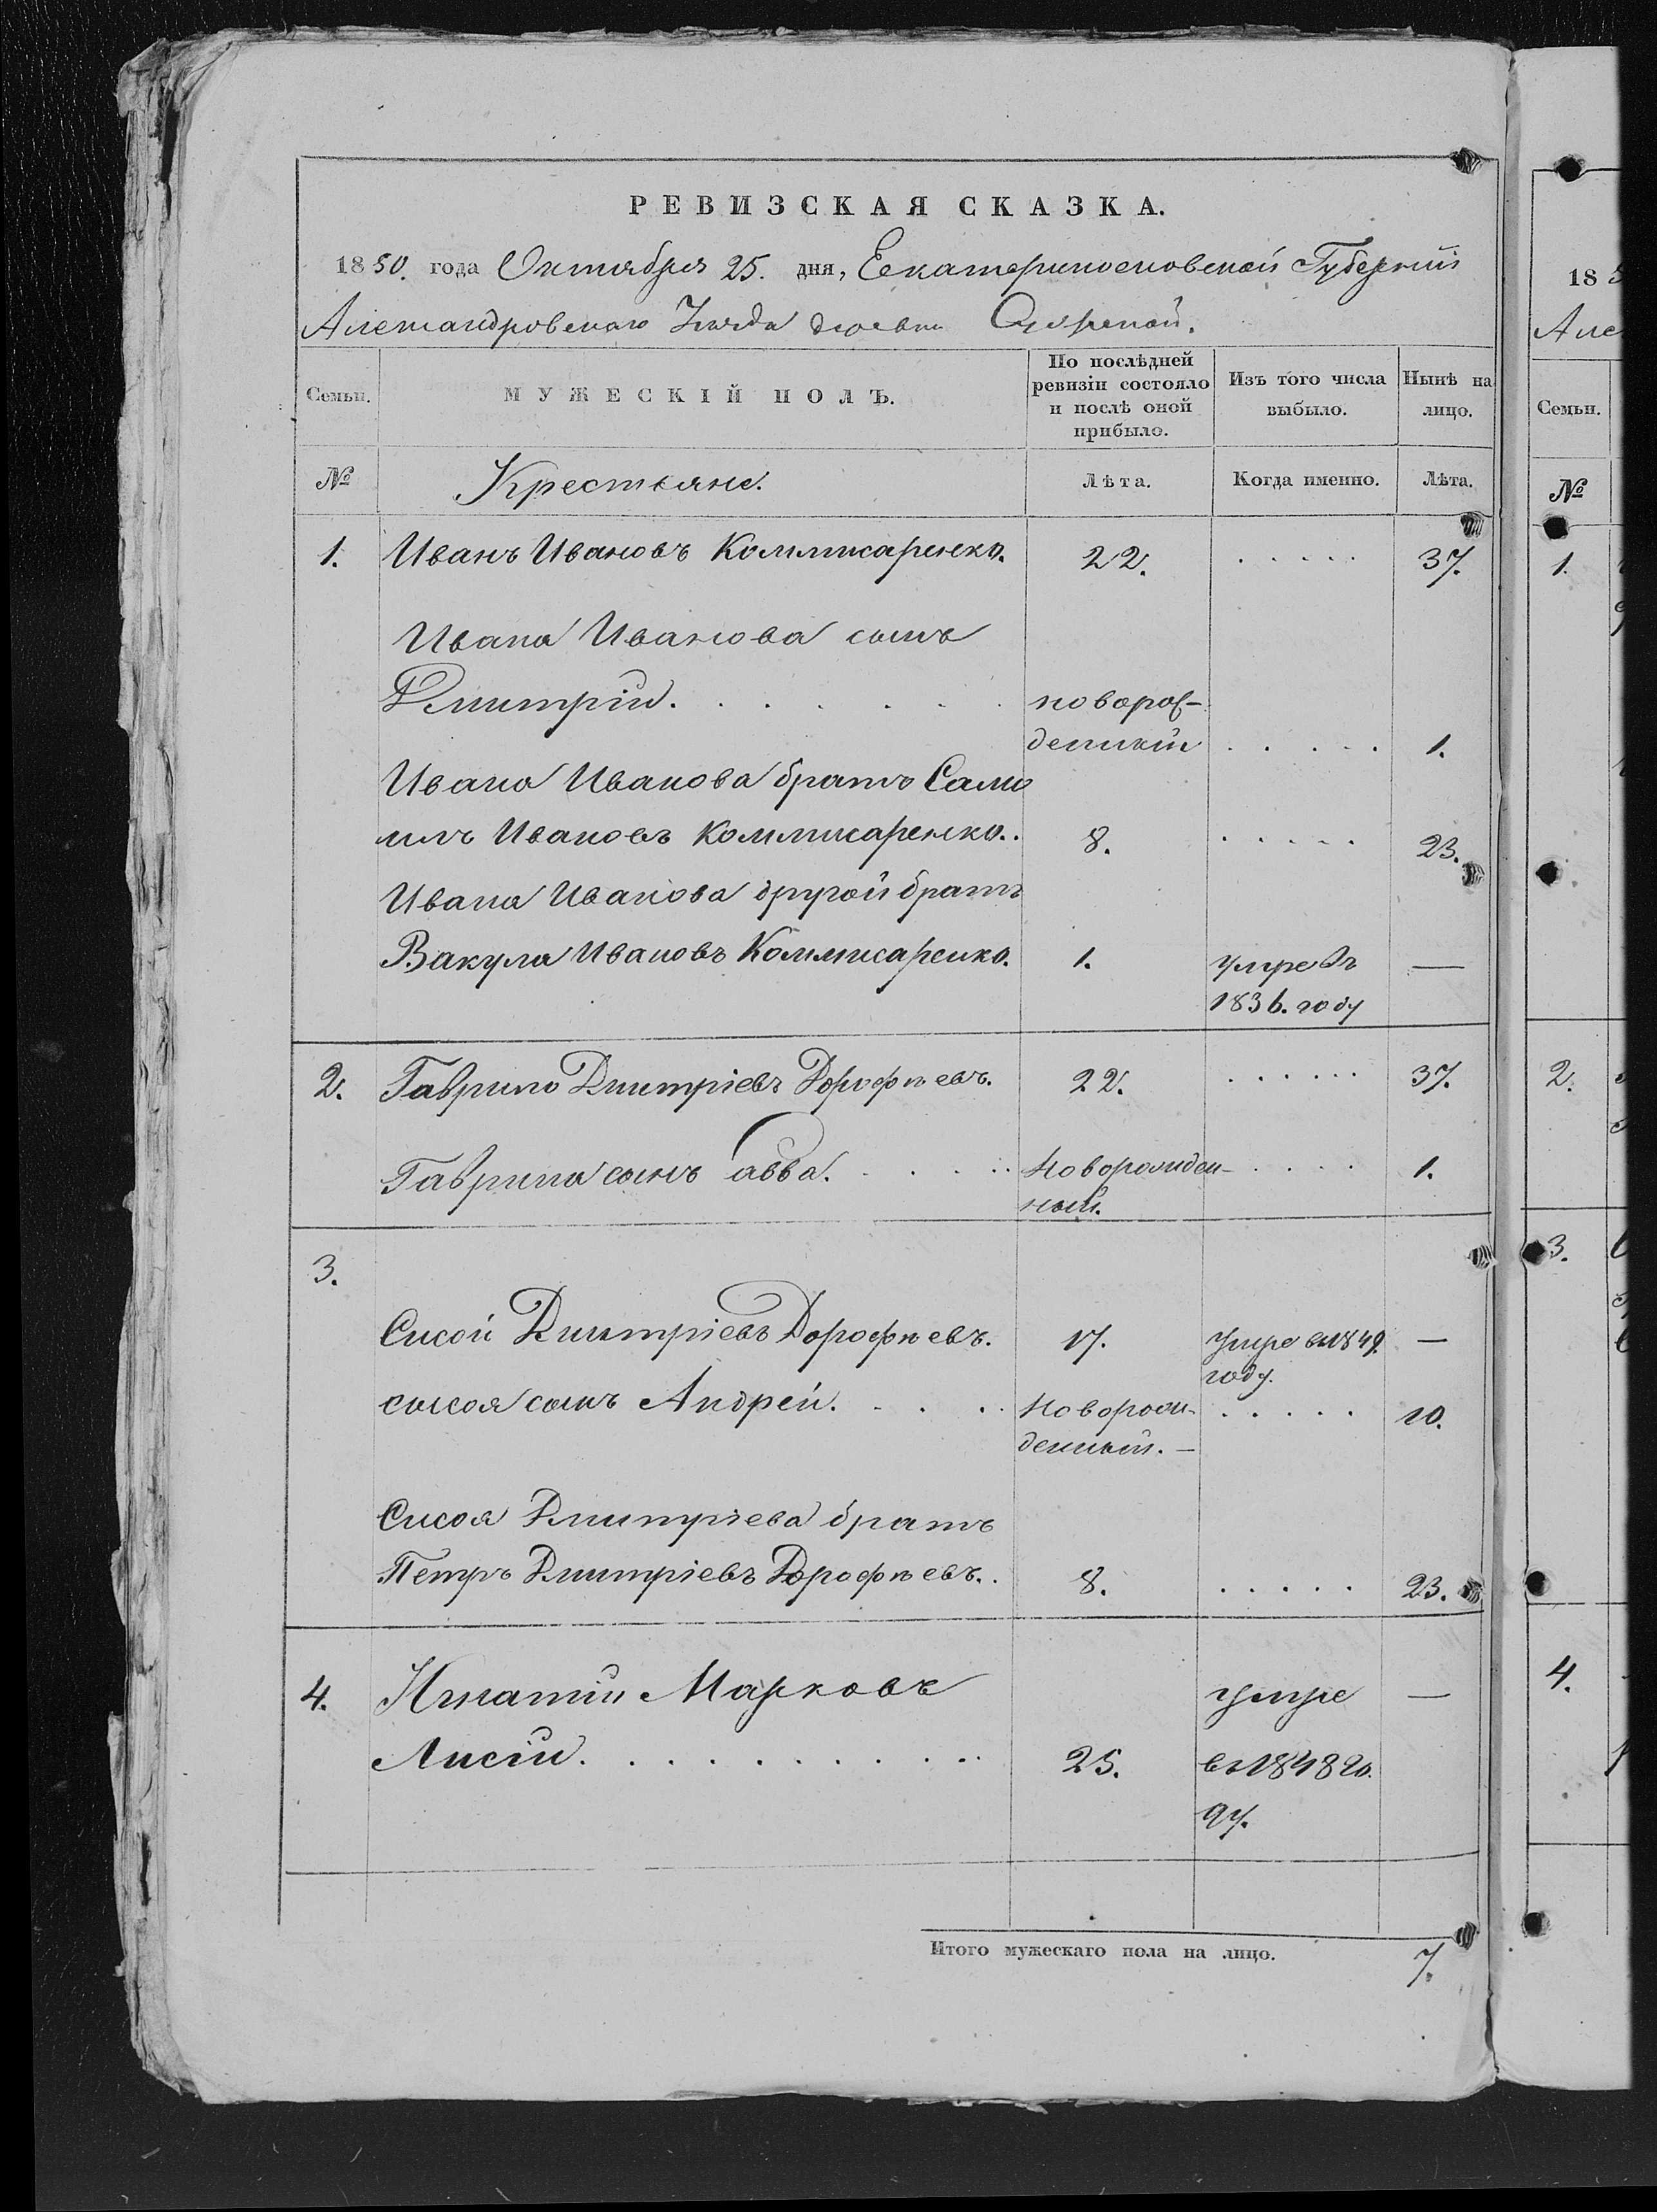 РЕВИЗСКАЯ СКАЗКА.
1850. года Октября 25. дня, Екатеринославской Губерніи
Александровскаго Уѣзда
Семьи.
МУЖЕСКІЙ ПОЛЪ.
По послѣдней ревизіи состояло и послѣ оной прибыло.
Изъ того числа выбыло.
Нынѣ на лицо.
№
Крестьяне.
Лѣта.
Когда именно.
Лѣта.
1. Иванъ Ивановъ Коммисаренко. 22. ..... 37.
Ивана Иванова сынъ
Дмитрій. ...... новорож-
денный ..... 1.
Ивана Иванова братъ Само
илъ Ивановъ Коммисаренко.. 8. ..... 23.
Ивана Иванова другой братъ
Вакула Ивановъ Коммисаренко. 1. умре въ —
1836. году
2. Гаврило Дмитріевъ Дорофѣевъ. 22. ...... 37.
Гаврила сынъ Савва. .... Новорожден- .... 1.
ный.
3.
Сисой Дмитріевъ Дорофѣевъ. 17. Умре въ 1849. —
году.
сисоя сынъ Андрей. ... Новорож- ..... 10.
денный. —
Сисоя Дмитріева братъ
Петръ Дмитріевъ Дорофѣевъ.. 8. ..... 23.
4. Игнатій Марковъ умре —
Лисій. ........... 25. въ 1848 го.
ду.
Итого мужескаго пола на лицо. 7.
18
Але
Семьи.
№
1.
2.
3.
4.